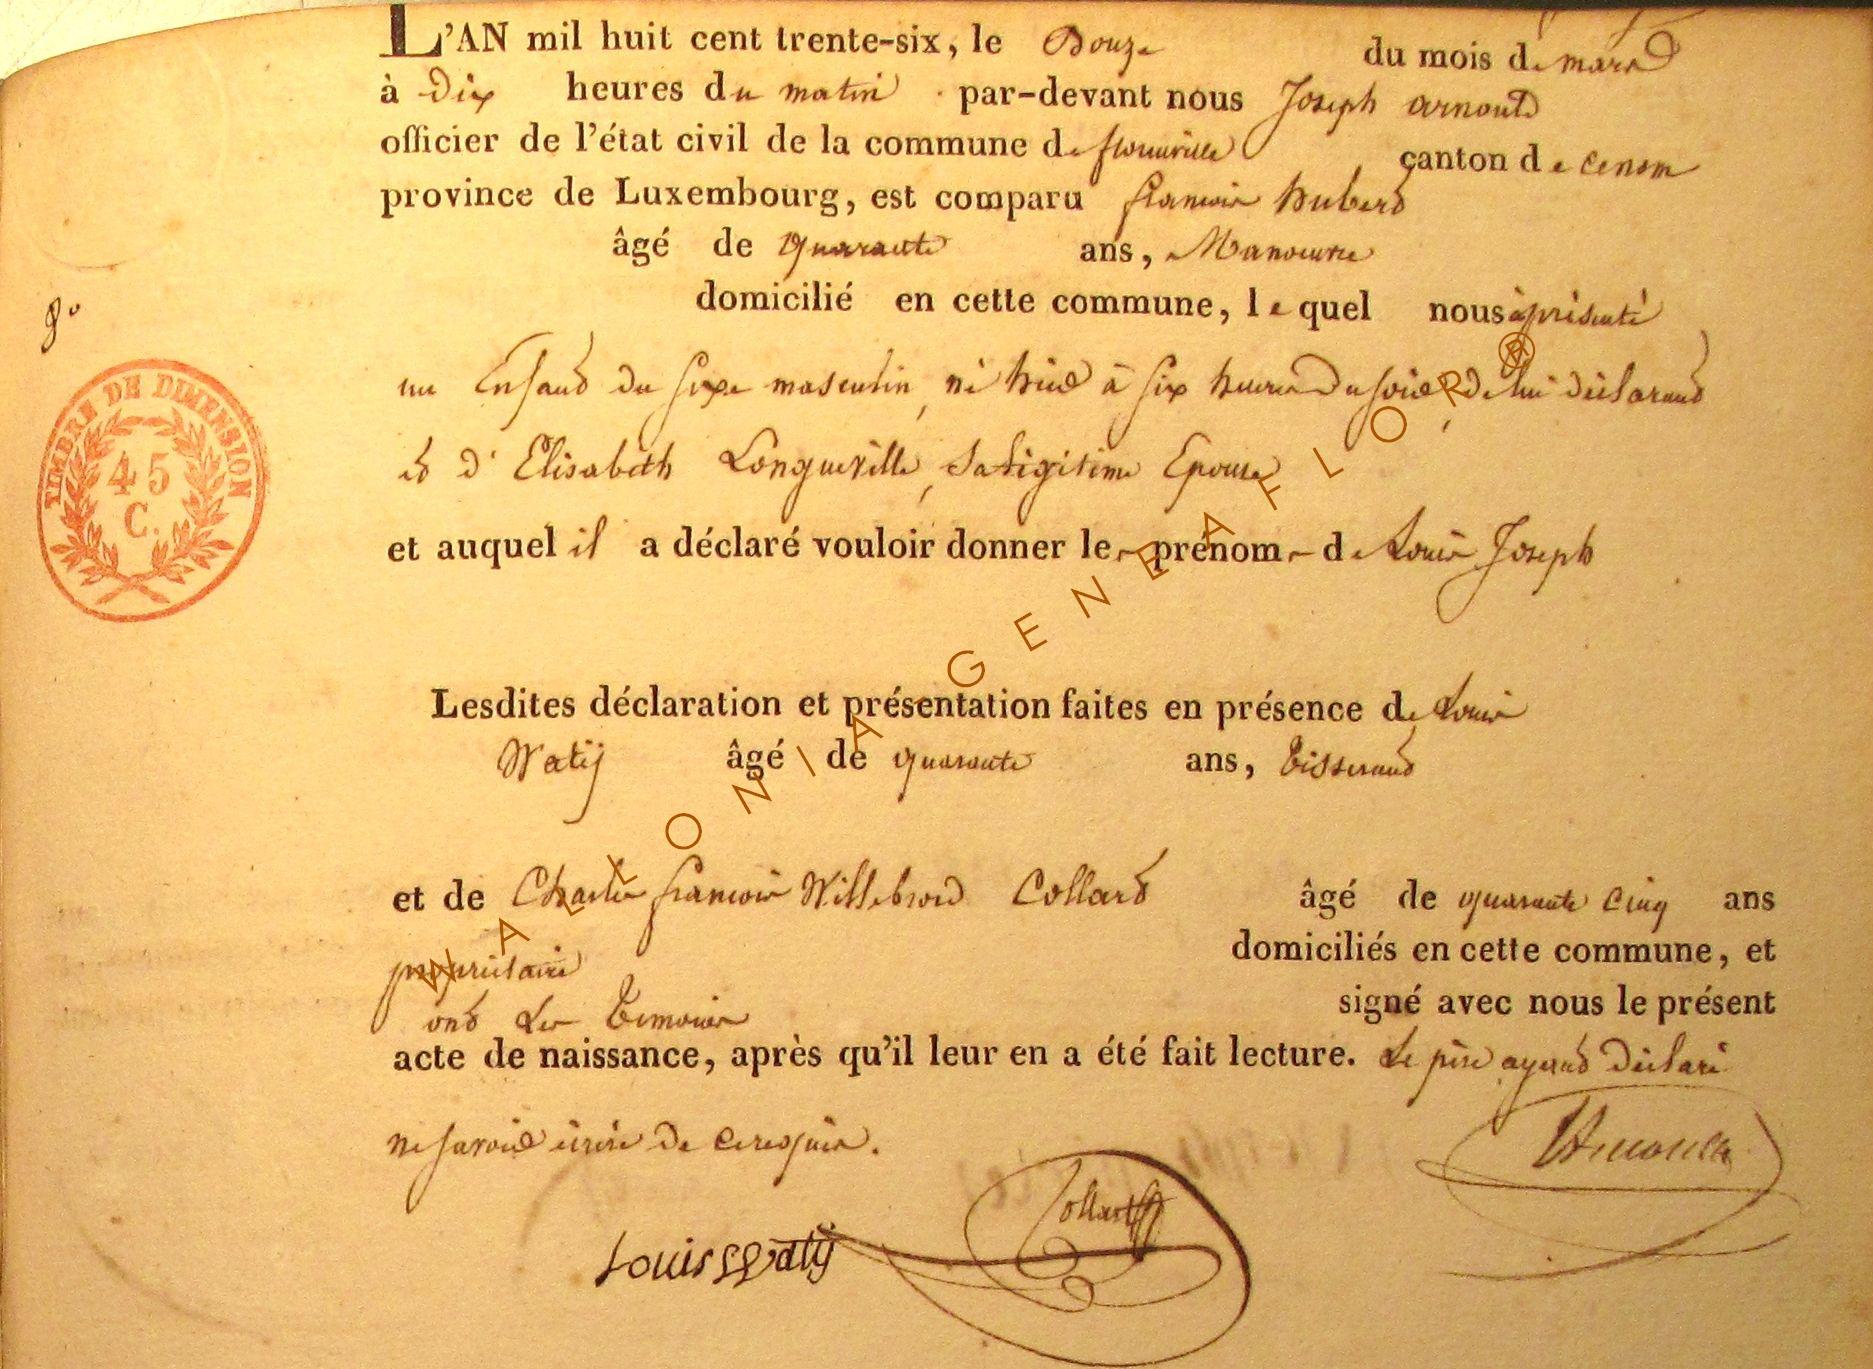 L'AN mil huit cent trente-six, le Douze du mois de mars
à dix heures du matin par-devant nous Joseph arnould
officier de l'état civil de la commune de flouuille canton de
province de Luxembourg, est comparu francois huberd
âgé de quarante ans, Manoeuvre
domicilié en cette commune, lequel nous à présenté
8°
un Enfand du sexe masculin, né hier à six heures du soir, de lui déclarand
et d'Elisabeth Longueville, sa Légitime Epouse
et auquel il a déclaré vouloir donner les prénoms de Louis Joseph
TIMBRE DE DIMENSION
45
C.
Lesdites déclaration et présentation faites en présence de Louis
Watij âgé de quarante ans, tisserand
et de Charles francois Willebrord Collard âgé de quarante cinq ans
propriétaire domiciliés en cette commune, et
ont Les témoins signé avec nous le présent
acte de naissance, après qu'il leur en a été fait lecture. Le père ayand déclaré
ne savoir écrire de ce requis.
Louis Watij Collard
WALLONIA GENEAFLOR ®